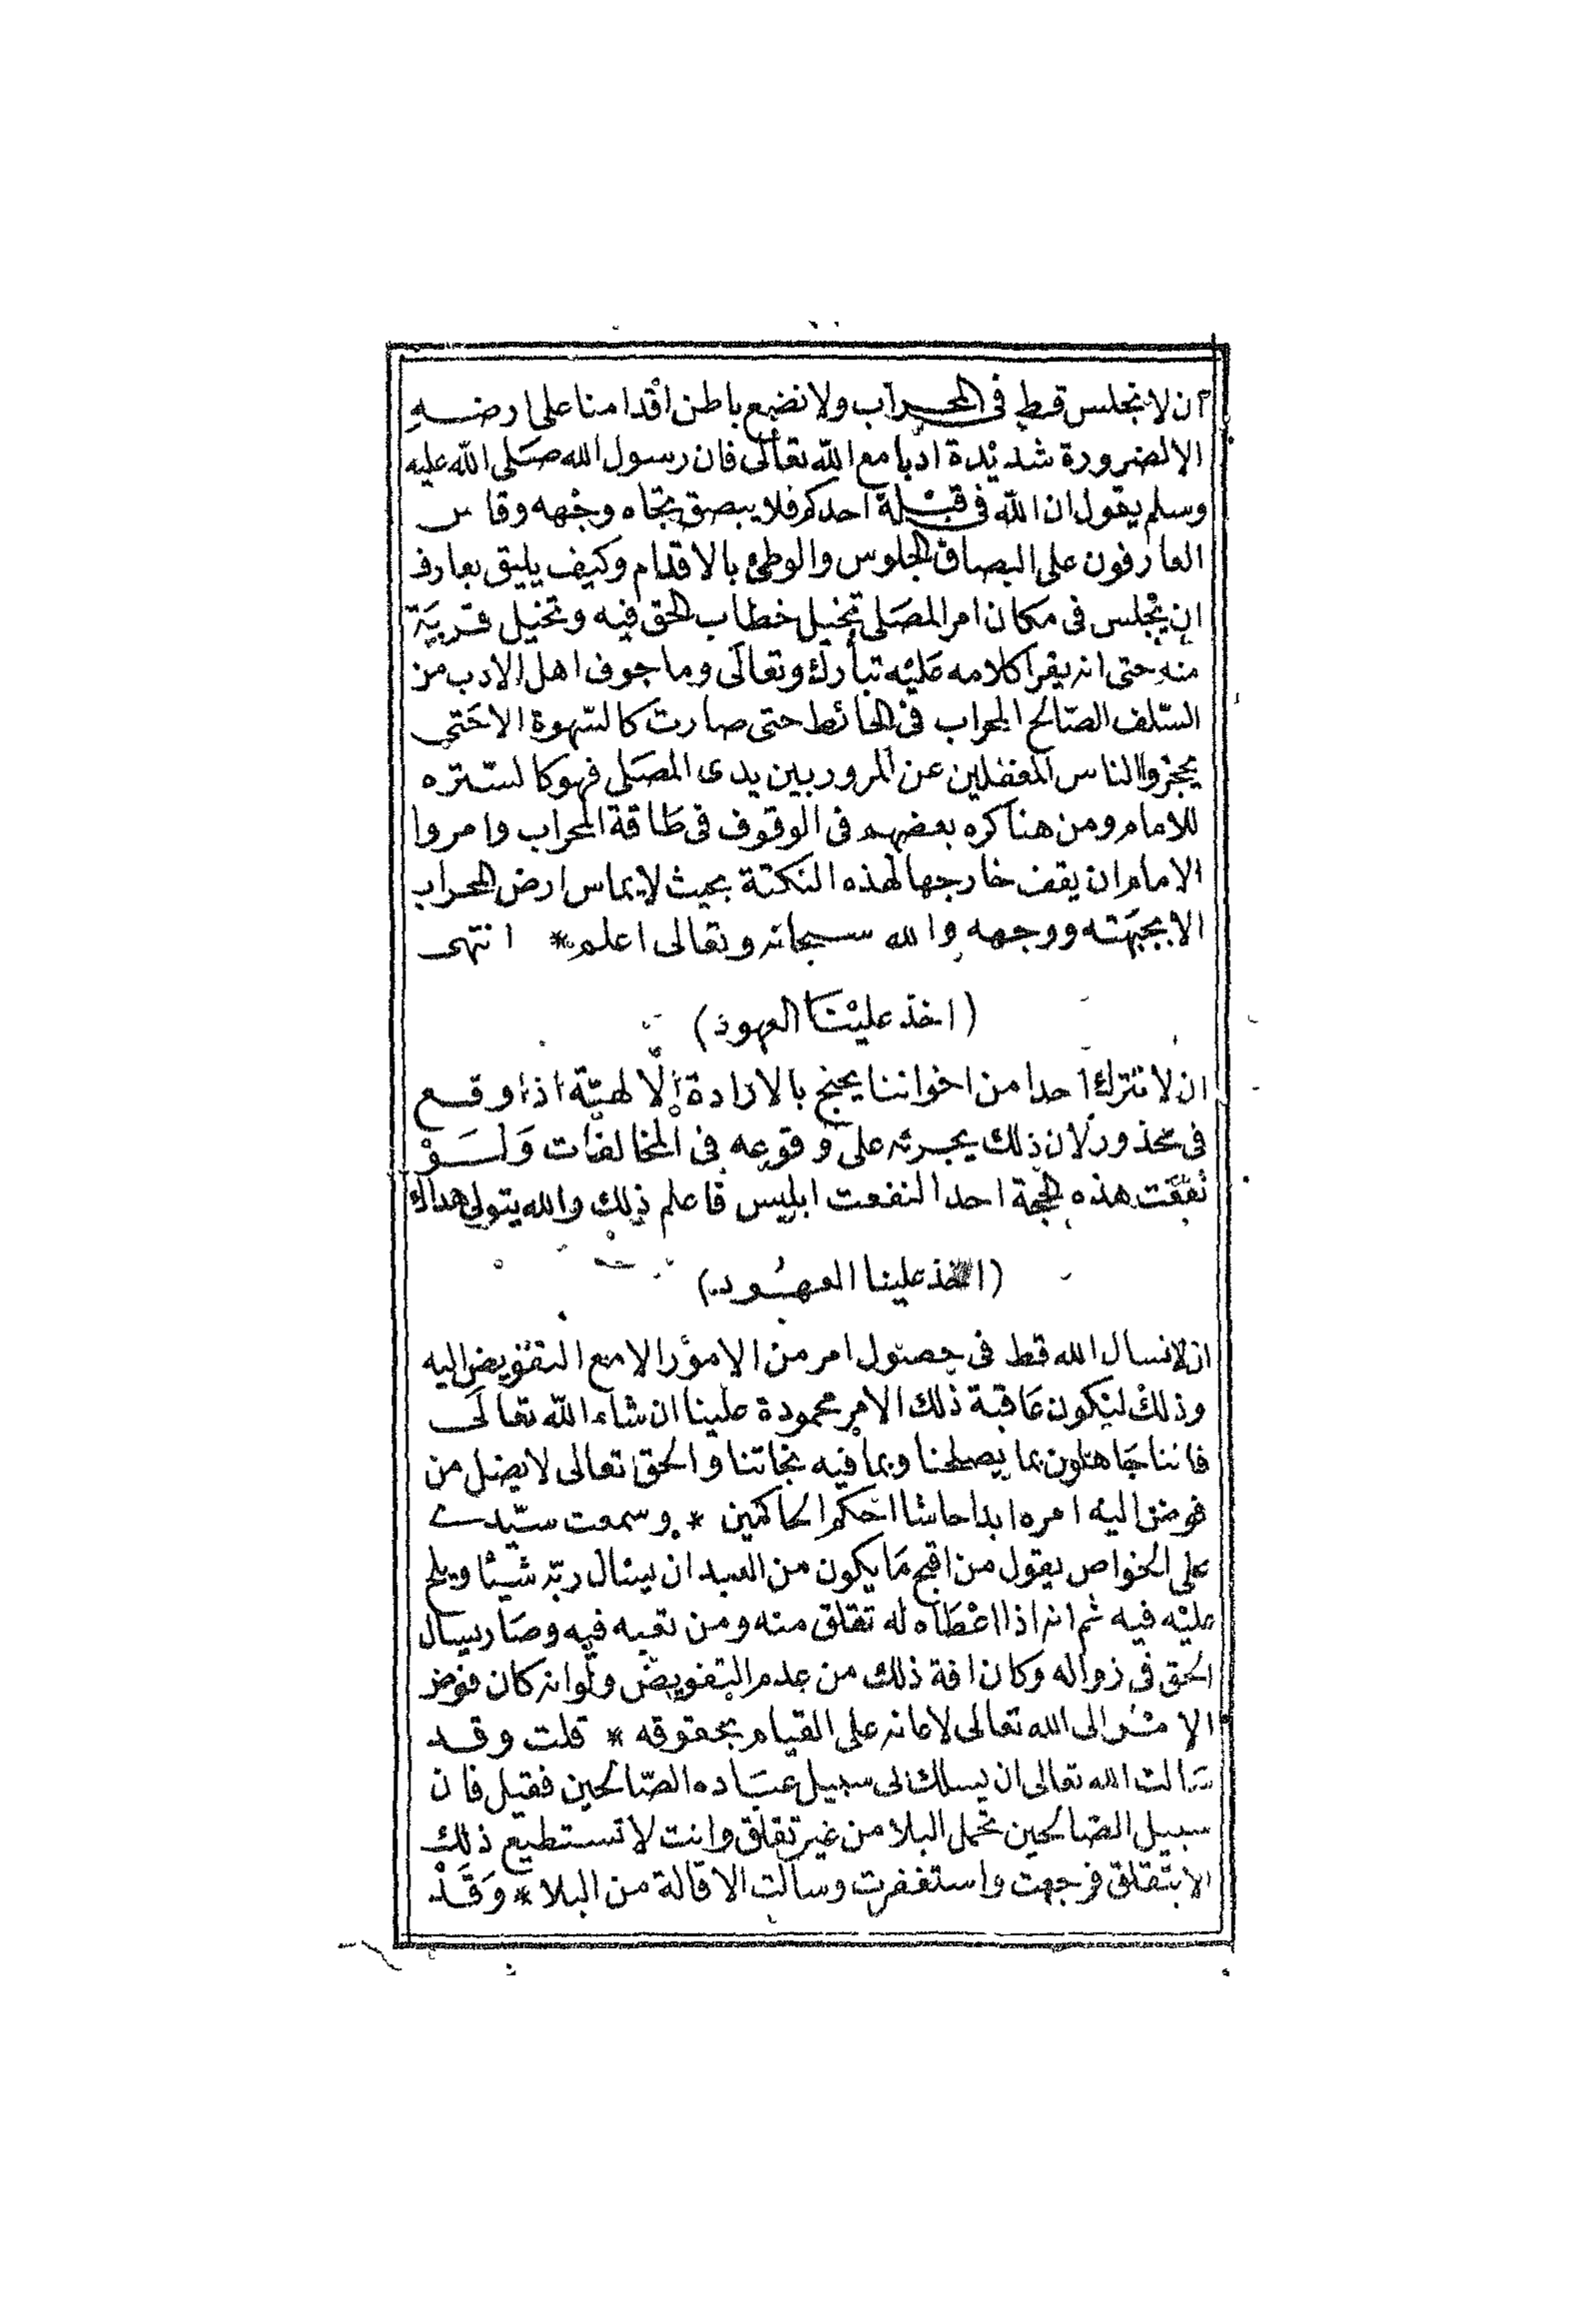 ان لا نجلس قط فى المحراب ولا نضع باطن اقدامنا على ارضه
الا لضرورة شديدة ادبا مع الله تعالى فان رسول الله صلى الله عليه
وسلم يقول ان الله فى قبلة احدكم فلا يبصق تجاه وجهه وقاس
العارفون على البصاق الجلوس والوطئ بالاقدام وكيف يليق بعارف
ان يجلس فى مكان امر المصلى تخيل خطاب الحق فيه وتخيل قربة
منه حتى انه يقرا كلامه عليه تبارك وتعالى وما جوف اهل الادب من
السلف الصالح المحراب فى الحائط حتى صارت كالسهوة الا حتى
يحجزوا الناس المغفلين عن المرور بين يدى المصلى فهو كالستره
للامام ومن هنا كره بعضهم فى الوقوف فى طاقة المحراب وامروا
الامام ان يقف خارجها لهذه النكتة بحيث لا يماس ارض المحراب
الا بجبهته ووجهه والله سبحانه وتعالى اعلم * انتهى
(اخذ علينا العهود)
ان لا نترك احدا من اخواننا يحتج بالارادة الالهية اذا وقع
فى محذور لان ذلك يجرئه على وقوعه فى المخالفات ولو
نفعت هذه الحجة احدا لنفعت ابليس فاعلم ذلك والله يتولى هداك
(اخذ علينا العهود)
ان لا نسال الله قط فى حصول امر من الامور الا مع التفويض اليه
وذلك ليكون عاقبة ذلك الامر محمودة علينا ان شاء الله تعالى
فاننا جاهلون بما يصلحنا وبما فيه نجاتنا والحق تعالى لا يضل من
فوض اليه امره ابدا حاشا احكم الحاكمين * وسمعت سيدى
على الخواص يقول من اقبح ما يكون من العبد ان يسال ربه شيئا ويلح
عليه فيه ثم انه اذا اعطاه له تقلق منه ومن تعبه فيه وصار يسال
الحق فى زواله وكان افة ذلك من عدم التفويض ولو انه كان فوض
الامر الى الله تعالى لاعانه على القيام بحقوقه * قلت وقد
سالت الله تعالى ان يسلك لى سبيل عباده الصالحين فقيل فان
سبيل الصالحين تحمل البلا من غير تقلق وانت لا تستطيع ذلك
الا بتقلق فرجعت واستغفرت وسالت الاقالة من البلا * وقد